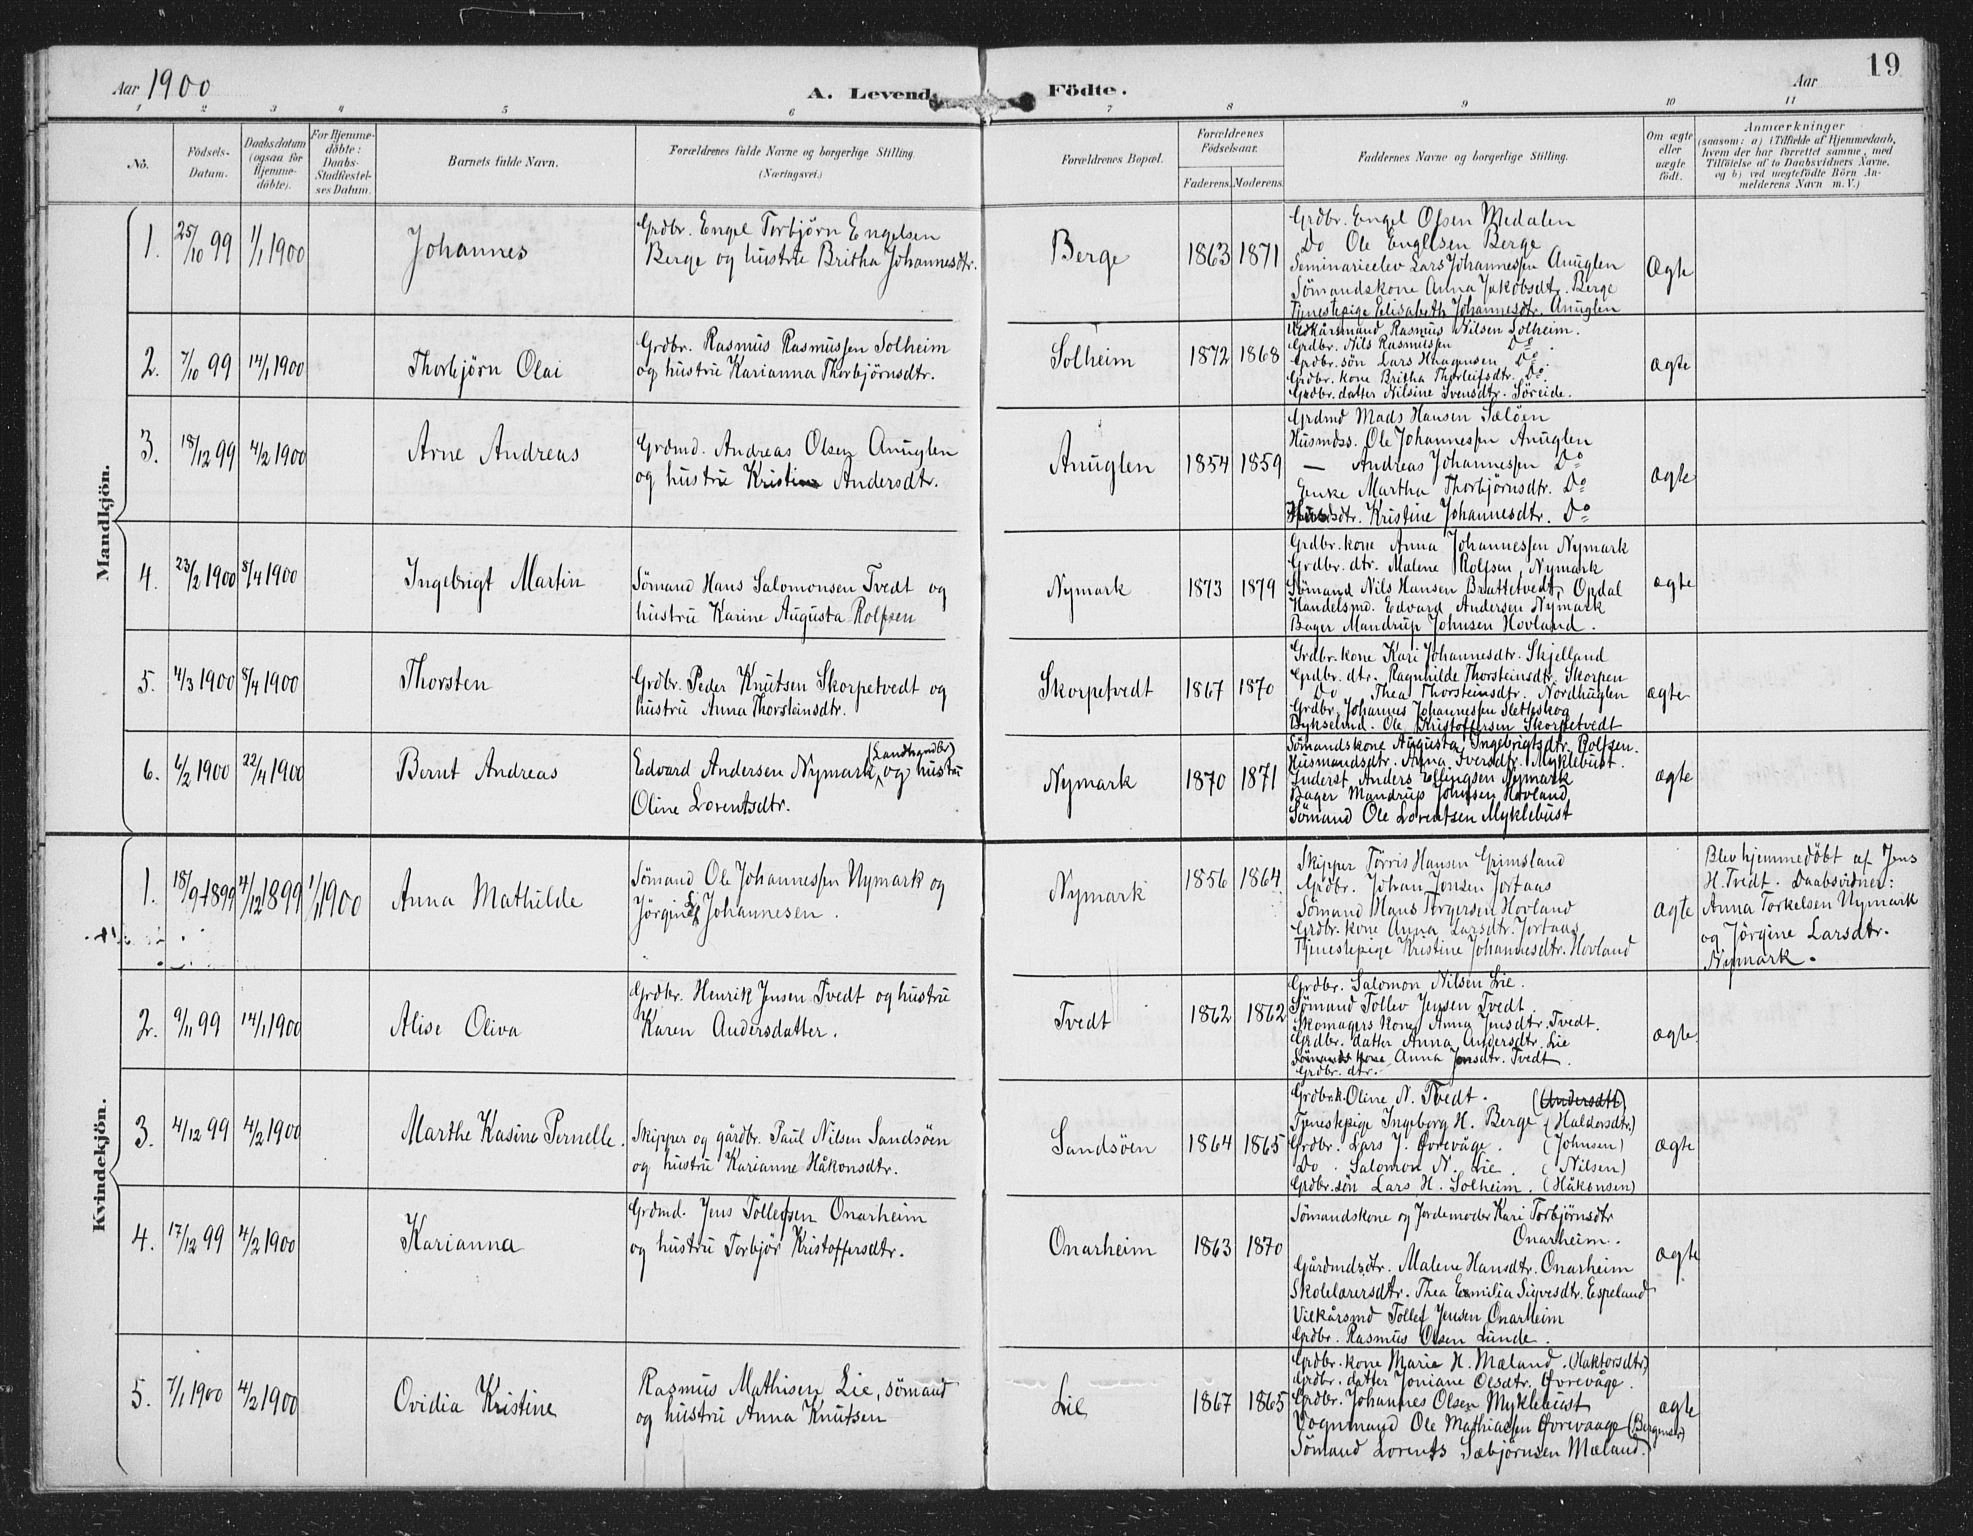 Aar 1900
A. Levende Födte.
Aar
19
1 2 3 4 5 6 7 8 9 10 11
No.
Födsels-
Datum.
Daabsdatum
(ogsaa for
Hjemme-
döbte).
For Hjemme-
döbte:
Daabs-
Stadfæstel-
ses Datum.
Barnets fulde Navn.
Forældrenes fulde Navne og borgerlige Stilling
(Næringsvei.)
Forældrenes Bopæl.
Forældrenes
Födselsaar.
Faderens. Moderens.
Faddernes Navne og borgerlige Stilling.
Om ægte
eller
uægte
födt.
Anmærkninger
(saasom: a) (Tilfælde af Hjemmedaab,
hvem der har forrettet samme, med
Tilföielse af to Daabsvidners Navne.
og b) ved uægtefödte Börn An-
melderens Navn m. V.)
Mandkjön.
1. 25/10 99 1/1 1900 Johannes
Grdbr. Engel Torbjörn Engelsen
Berge og hustru Britha Johannesdtr.
Berge 1863 1871
Grdbr. Engel Olsen Medalen
Do Ole Engelsen Berge
Seminarieelev Lars Johannessen Anuglen
Sömandskone Anna Jakobsdtr. Berge
Tjenestepige Elisabeth Johannesdtr. Anuglen
Ægte
2. 7/10 99 14/1 1900 Thorbjörn Olai
Grdbr. Rasmus Rasmussen Solheim
og hustru Karianna Thorbjörnsdtr.
Solheim 1872 1868
Vilkårsmand Rasmus Nilsen Solheim.
Grdbr. Nils Rasmussen Do.
Grdbr. sön Lars Haagensen Do.
Grdbr. kone Britha Thorleifsdtr. Do.
Grdbr. datter Nilsine Svensdtr. Söreide.
ægte
3. 18/12 99 4/2 1900 Arne Andreas
Grdmd. Andreas Olsen Anuglen
og hustru Kristine Andersdtr.
Anuglen 1854 1859
Grdmd Mads Hansen Sælöen
Husmdss. Ole Johannessen Anuglen
— Andreas Johannessen Do
Enke Martha Thorbjörnsdtr. Do
Husmdsdtr. Kristine Johannesdtr. Do
ægte
4. 23/2 1900 8/4 1900 Ingebrigt Martin
Sömand Hans Salomonsen Tvedt og
hustru Karine Augusta Rolfsen
Nymark 1873 1879
Grdbr. kone Anna Johannessen Nymark
Grdbr. dtr. Malene Rolfsen Nymark
Sömand Nils Hansen Brattetvedt, Opdal
Handelsmd. Edvard Andersen Nymark
Bager Mandrup Johnsen Hovland.
ægte
5. 4/3 1900 8/4 1900 Thorsten
Grdbr. Peder Knutsen Skorpetvedt og
hustru Anna Thorsteinsdtr.
Skorpetvedt 1867 1870
Grdbr. kone Kari Johannesdtr. Skjelland
Grdbr. dtr. Ragnhilde Thorsteinsdtr. Skorpen
Do Thea Thorsteinsdtr. Nordhuglen
Grdbr. Johannes Johannessen Slethskog
Bykselmd. Ole Kristoffersen Skorpetvedt
ægte
6. 6/2 1900 22/4 1900 Bernt Andreas
(Landhandler)
Edvard Andersen Nymark, og hustru
Oline Lorentsdtr.
Nymark 1870 1871
Sömandskone Augusta Ingebrigtsdtr. Rolfsen.
Husmandsdtr. Anna Iversdtr. Myklebust.
Inderst Anders Ellingsen Nymark
Bager Mandrup Johnsen Hovland
Sömand Ole Lorentsen Myklebust
ægte
Kvindekjön.
1. 18/9 1899 4/12 1899 1/1 1900 Anna Mathilde
Sömand Ole Johannessen Nymark og
Jörgine L. Johannesen.
Nymark 1856 1864
Skipper Törris Hansen Grimsland
Grdbr. Johan Jensen Jortaas
Sömand Hans Torgersen Hovland
Grdbr. kone Anna Larsdtr. Jortaas
Tjenestepige Kristine Johannesdtr. Hovland
ægte
Blev hjemmedöbt af Jens
H. Tvedt. Daabsvidner:
Anna Torkelsen Nymark
og Jörgine Larsdtr.
Nymark.
2. 9/11 99 14/1 1900 Alise Oliva
Grdbr. Henrik Jensen Tvedt og hustru
Karen Andersdatter.
Tvedt 1862 1862
Grdbr. Salomon Nilsen Lie.
Sömand Tollev Jensen Tvedt
Skomagers kone Anna Jensdtr. Tvedt.
Grdbr. datter Anna Andersdtr. Lie
Sömands kone Anna Jensdtr. Tvedt.
Grdbr. dtr.
ægte
3. 4/12 99 4/2 1900 Marthe Kasine Pernelle.
Skipper og gårdbr. Paul Nilsen Sandsöen
og hustru Karianne Håkonsdtr.
Sandsöen 1864 1865
Grdbr.k. Oline N. Tvedt. (Andersdtr)
Tjenestepige Ingeborg H. Berge (Haldorsdtr.)
Grdbr. Lars J. Övrevåge. (Johnsen)
Do. Salomon N. Lie. (Nilsen)
Grdbr. sön Lars H. Solheim. (Håkonsen)
ægte
4. 17/12 99 4/2 1900 Karianna
Grdmd. Jens Tollefsen Onarheim
og hustru Torbjör Kristoffersdtr.
Onarheim 1863 1870
Sömandskone og Jordemoder Kari Torbjörnsdtr
Onarheim.
Gårdmdsdtr. Malene Hansdtr. Onarheim
Skolelærersdtr. Thea Emilia Sigvesdtr. Espeland
Vilkårsmd Tollef Jensen Onarheim
Grdbr. Rasmus Olsen Lunde.
ægte
5. 7/1 1900 4/2 1900 Ovidia Kristine
Rasmus Mathisen Lie, sömand
og hustru Anna Knutsen
Lie 1867 1865
Grdbr. kone Marie H. Mæland. (Haktorsdtr)
Grdbr. datter Joniane Olsdtr. Övrevåge.
Grdbr. Johannes Olsen Myklebust
Vognmand Ole Mathiassen Övrevaage (Bergenser)
Sömand Lorents Sæbjörnsen Mæland.
ægte